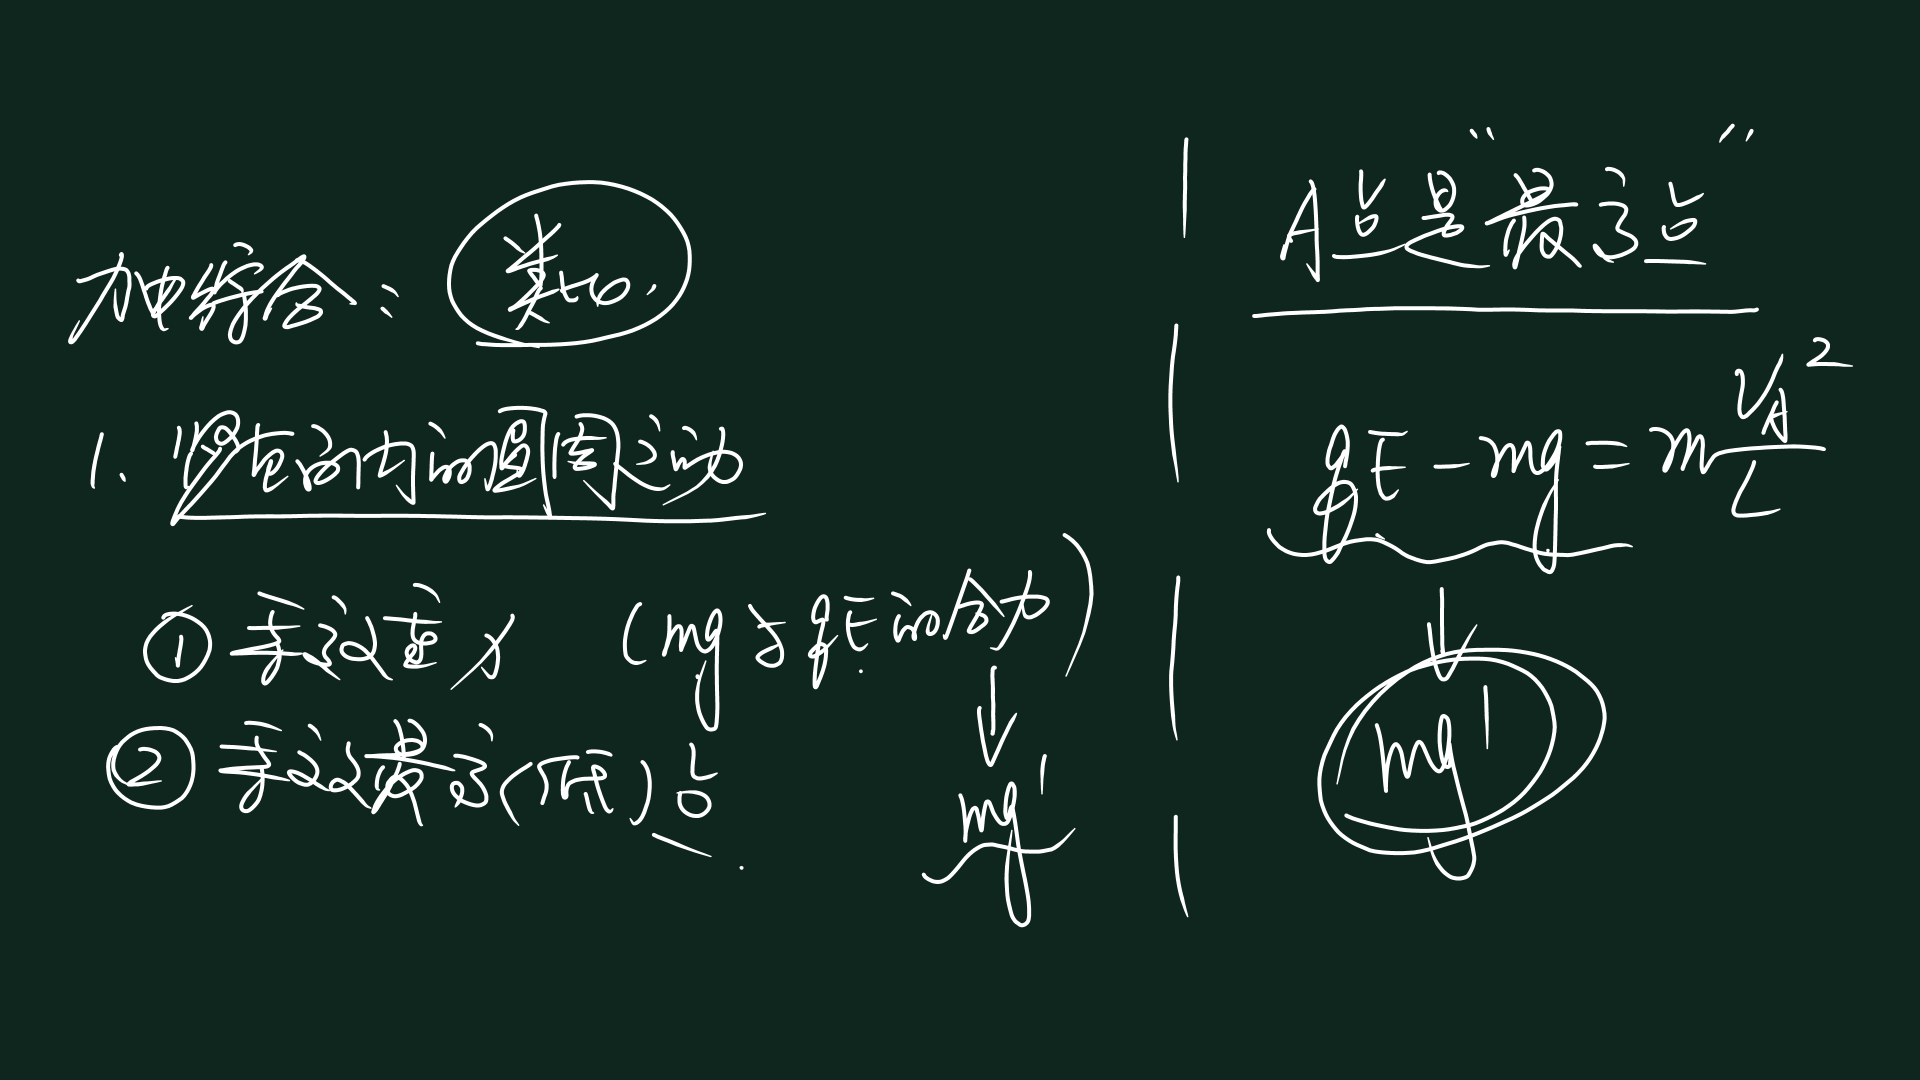 力电综合：类比.
1. 竖直面内的圆周运动
① 等效重力 (mg与qE的合力)
↓
mg'
② 等效最高(低)点
A点是"最高点"
qE - mg = m v_A²/L
↓
mg'